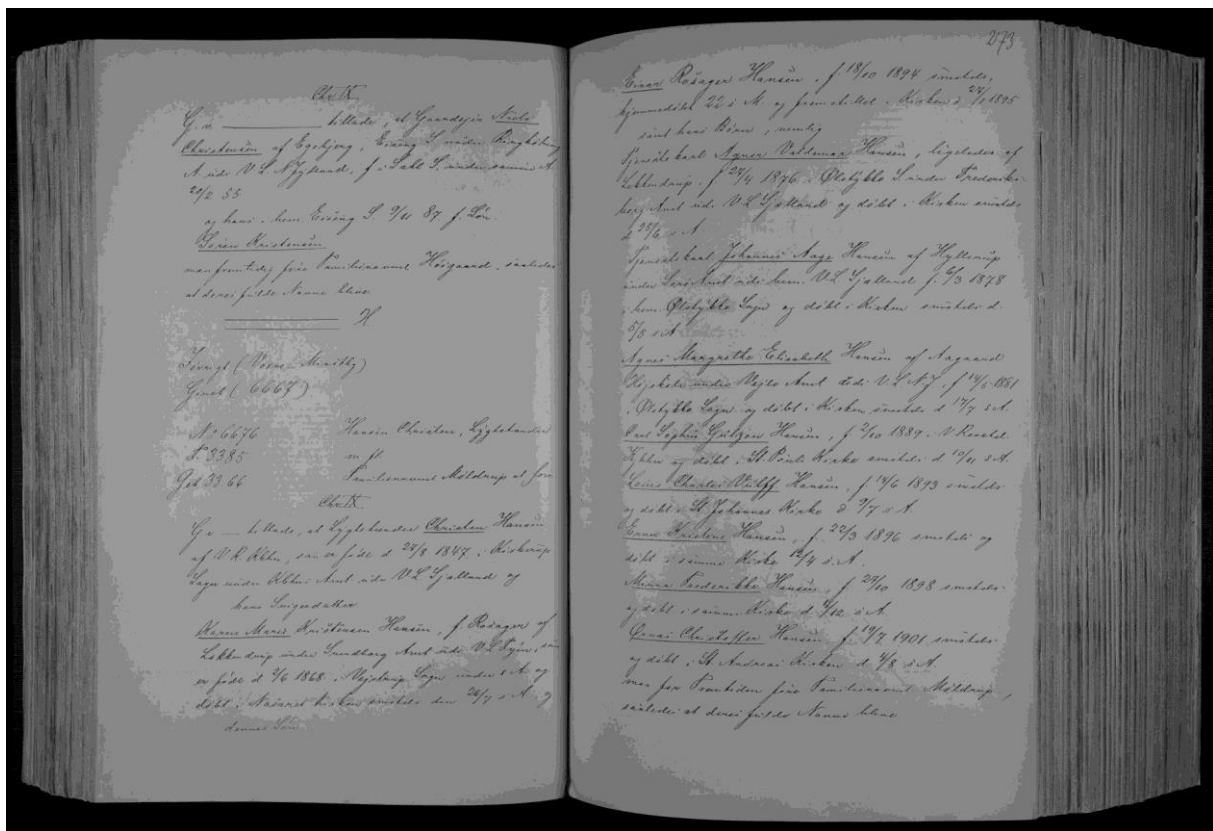 Chr. IX.
G. v. tillade, at Gaardejer Niels
Christensen af Egebjerg, Eising S. under Ringkøbing
A. udi V. L. N. Jylland, f. i Sahl S. under samme A.
20/2 55
og hans i hem. Eising S. 9/11 87 f. Søn
Søren Kristensen
maa fremtidig føre Familienavnet Høigaard, saaledes
at deres fulde Navne blive
H
Iøvrigt (Voxne - Mindthg)
Givet (6667)
No 6676 Hansen Christen, Lygtetænder
S. 3385 m. fl.
Ged. 3366 Familienavnet Møldrup at føre
Chr. IX.
G. v. — tillade, at Lygtetænder Christen Hansen
af V. R. Kbhn, som er født d. 28/8 1847 i Kirkerup
Sogn under Kbhns Amt udi V. L. Sjælland og
hans Svigerdatter
Karen Marie Kristensen Hansen, f. Rosager af
Løkkendrup under Svendborg Amt udi V. L. Fyen, som
er født d. 2/6 1868 i Vejstrup Sogn under s. A. og
døbt i Nazaret Kirken smstds den 26/7 s. A. og
dennes Søn
273
Einar Rosager Hansen, f. 18/10 1894 smstds,
hjemmedøbt 22 s. M. og fremstillet i Kirken d. 27/1 1895
samt hans Børn, nemlig
Tjenestekarl Agner Valdemar Hansen, ligeledes af
Løkkendrup, f. 27/4 1876 i Ølstykke S. under Frederiks-
borg Amt udi V. L. Sjælland og døbt i Kirken smstds
d. 25/6 s. A.
Tjenestekarl Johannes Aage Hansen af Hyllerup
under Sorø Amt udi hem. V. L. Sjælland f. 6/3 1878
i hem. Ølstykke Sogn og døbt i Kirken smstds d.
5/5 s. A.
Agnes Margrethe Elisabeth Hansen af Aagaard
Højskole under Vejle Amt udi V. L. N. J., f. 14/5 1881
i Ølstykke Sogn og døbt i Kirken smstds d. 17/7 s. A.
Carl Sophus Hansen, f. 2/10 1889 i V. Residsd.
Kjbhn og døbt i St. Pauls Kirke smstds d. 10/11 s. A.
Louis Charles Wulff Hansen, f. 14/6 1893 smstds
og døbt i St. Johannes Kirke d. 9/7 s. A.
Erna Kristine Hansen, f. 22/3 1896 smstds og
døbt i samme Kirke 12/4 s. A.
Minna Frederikke Hansen, f. 23/10 1898 smstds
og døbt i samme Kirke d. 4/12 s. A.
Christoffer Hansen, f. 19/7 1901 smstds
og døbt i St. Andreas Kirken d. 4/8 s. A.
maa for Fremtiden føre Familienavnet Møldrup,
saaledes at deres fulde Navne blive